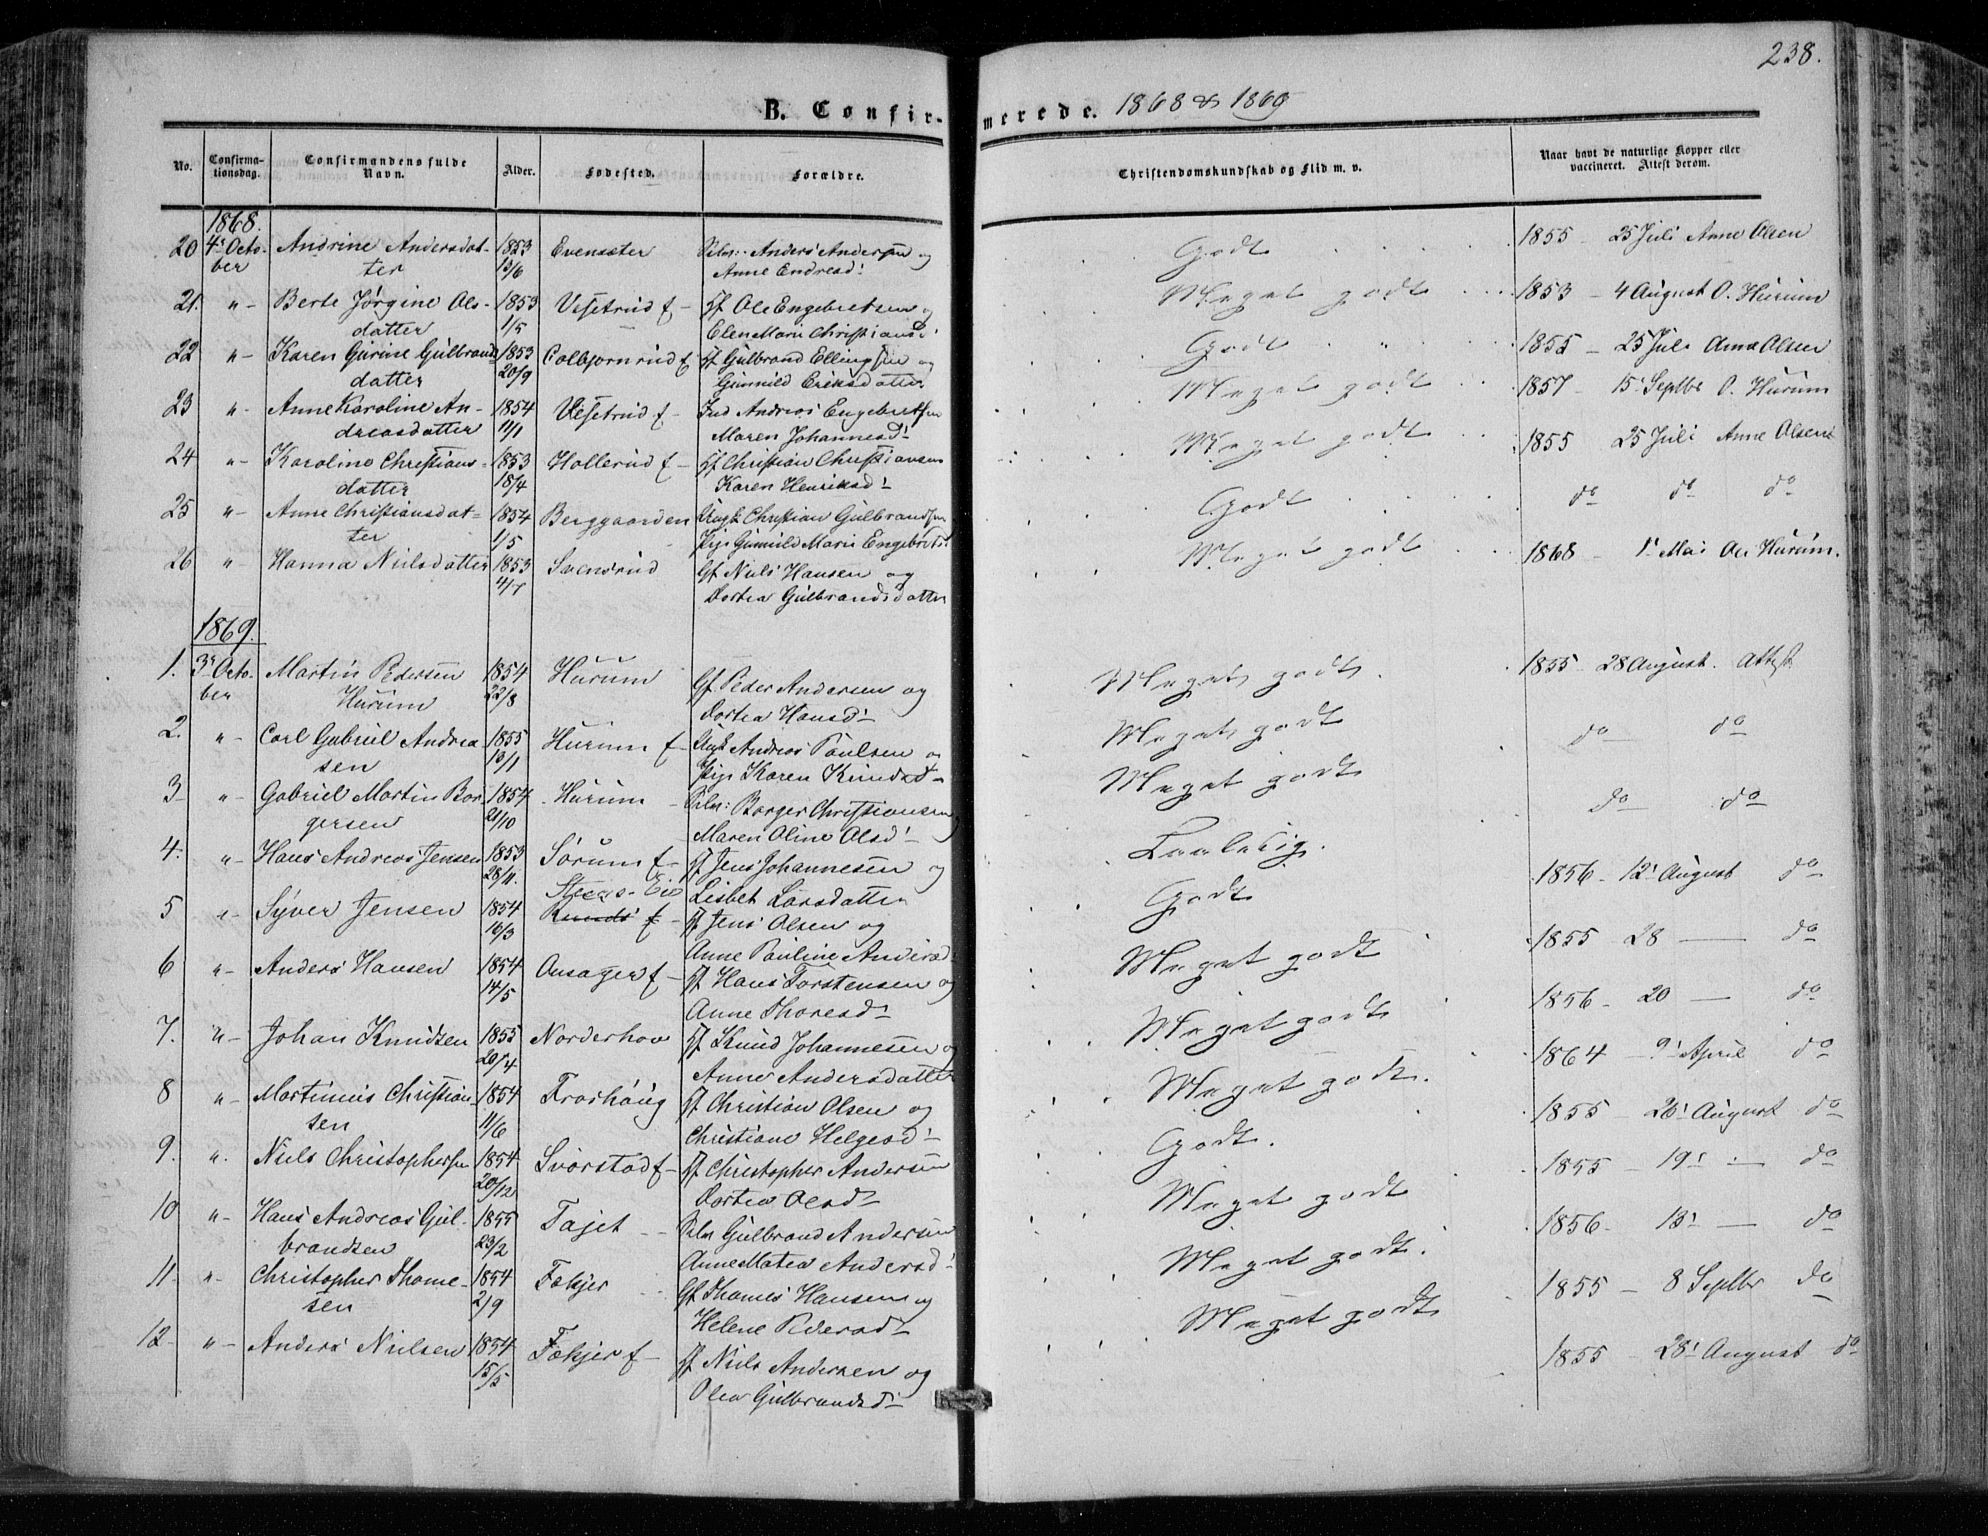 238.
B. Confirmerede. 1868 & 1869
No. Confirmationsdag. Confirmandens fulde Navn. Alder. Fødested. Forældre. Christendomskundskab og Flid m. v. Naar havt de naturlige Kopper eller vaccineret. Attest derom.
1868.
20 4' Octo- Andrine Andersdat- 1853 Evensæter Selv: Anders Andersen og Godt 1855 - 25 Juli Anne Olsen
ber ter 13/6 Anne Endresd!
21. "- Berte Jørgine Ols- 1853 Vesetrud f - Hf Ole Engebretsen og Meget godt 1853 - 4 August O. Hurum
datter 1/5 Elen Marie Christiansd!
22 "- Karen Gurine Gulbrands 1853 Colbjørnrud f Hf Gulbrand Ellingsen og Godt 1855 - 25 Juli Anne Olsen
datter 20/9 Gunnild Eriksdatter
23 "- Anne Karoline An- 1854 Vesetrud f - Ind Andreas Engebretsen Meget godt 1857 - 15' Septbr O. Hurum
dreasdatter 11/1 Maren Johannesd!
24 "- Karoline Christians- 1853 Hollerud f - Hf Christian Christiansen Meget godt 1855 25 Juli Anne Olsen
datter 18/4 Karen Henriksd!
25 "- Anne Christiansdat- 1854 Berggaarden Ungk Christian Gulbrandsen Godt do do do
ter 1/5 Pige Gunnild Marie Engebretsd.
26 "- Hanna Nielsdatter 1853 Svensrud Gf Niels Hansen og Meget godt 1868 - 1' Mai Ol Hurum.
4/7 Dortea Gulbrandsdatter
1869.
1. 3' Octo- Martin Pedersen 1854 Hurum Gf Peder Andersen og Meget godt 1855 - 28 August. Attest
ber Hurum 22/8 Dortea Hansd!
2. "- Carl Gabriel Andrea 1855 Hurum f - Ungk Andreas Paulsen og Meget godt do do
sen 13/1 Pige Karen Knudsd -
3 "- Gabriel Martin Bor 1854 Hurum - Selv: Borger Christiansen og Meget godt do do
gersen 21/10 Maren Oline Olsd!
4. "- Hans Andreas Jensen 1853 Sørum f - Hf Jens Johannesen og Taalelig. 1856 - 12' August do
28/11. Steens-Eie Lisbet Larsdatter
5 "- Syver Jensen 1854 Hf Jens Olsen og Godt 1855 28 — do
16/3 Anne Pauline Andersd!
6 "- Anders Hansen 1854 Onsager f - Hf Hans Torstensen og Meget godt 1856 - 20 — do
14/5 Anne Thoresd!
7. "- Johan Knudsen 1855 Norderhov Hf Knud Johannesen og Meget godt 1864 - 9' April do
20/4 Anne Andersdatter
8 "- Martinius Christian- 1854 Frøshaug Hf Christian Olsen og Meget godt. 1855 - 26' August do
sen 11/6 Christiane Helgesd!
9. ". Niels Christophersen 1854 Svarstad f - Hf Christopher Andersen Godt. 1855 - 19' — do
20/12 Dortea Olsd!
10 "- Hans Andreas Gul- 1855 Fajet - Selv Gulbrand Andersen Meget godt 1856 - 13' — do
brandsen 23/2 Anne Matea Andersd!
11. "- Christopher Thome- 1854 Fækjer Gf Thomes Hansen og Meget godt. 1855 - 8 Septbr do
sen 2/9 Helene Pedersd!
12 "- Anders Nielsen 1854 Fækjer f - Hf Niels Andersen og Meget godt 1855 - 28' August do
15/5 Olea Gulbrandsd!